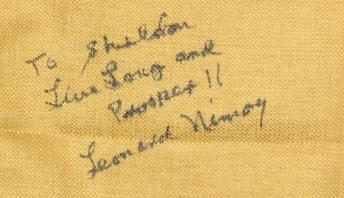 To Sheldon
Live Long and
Prosper!!
Leonard Nimoy